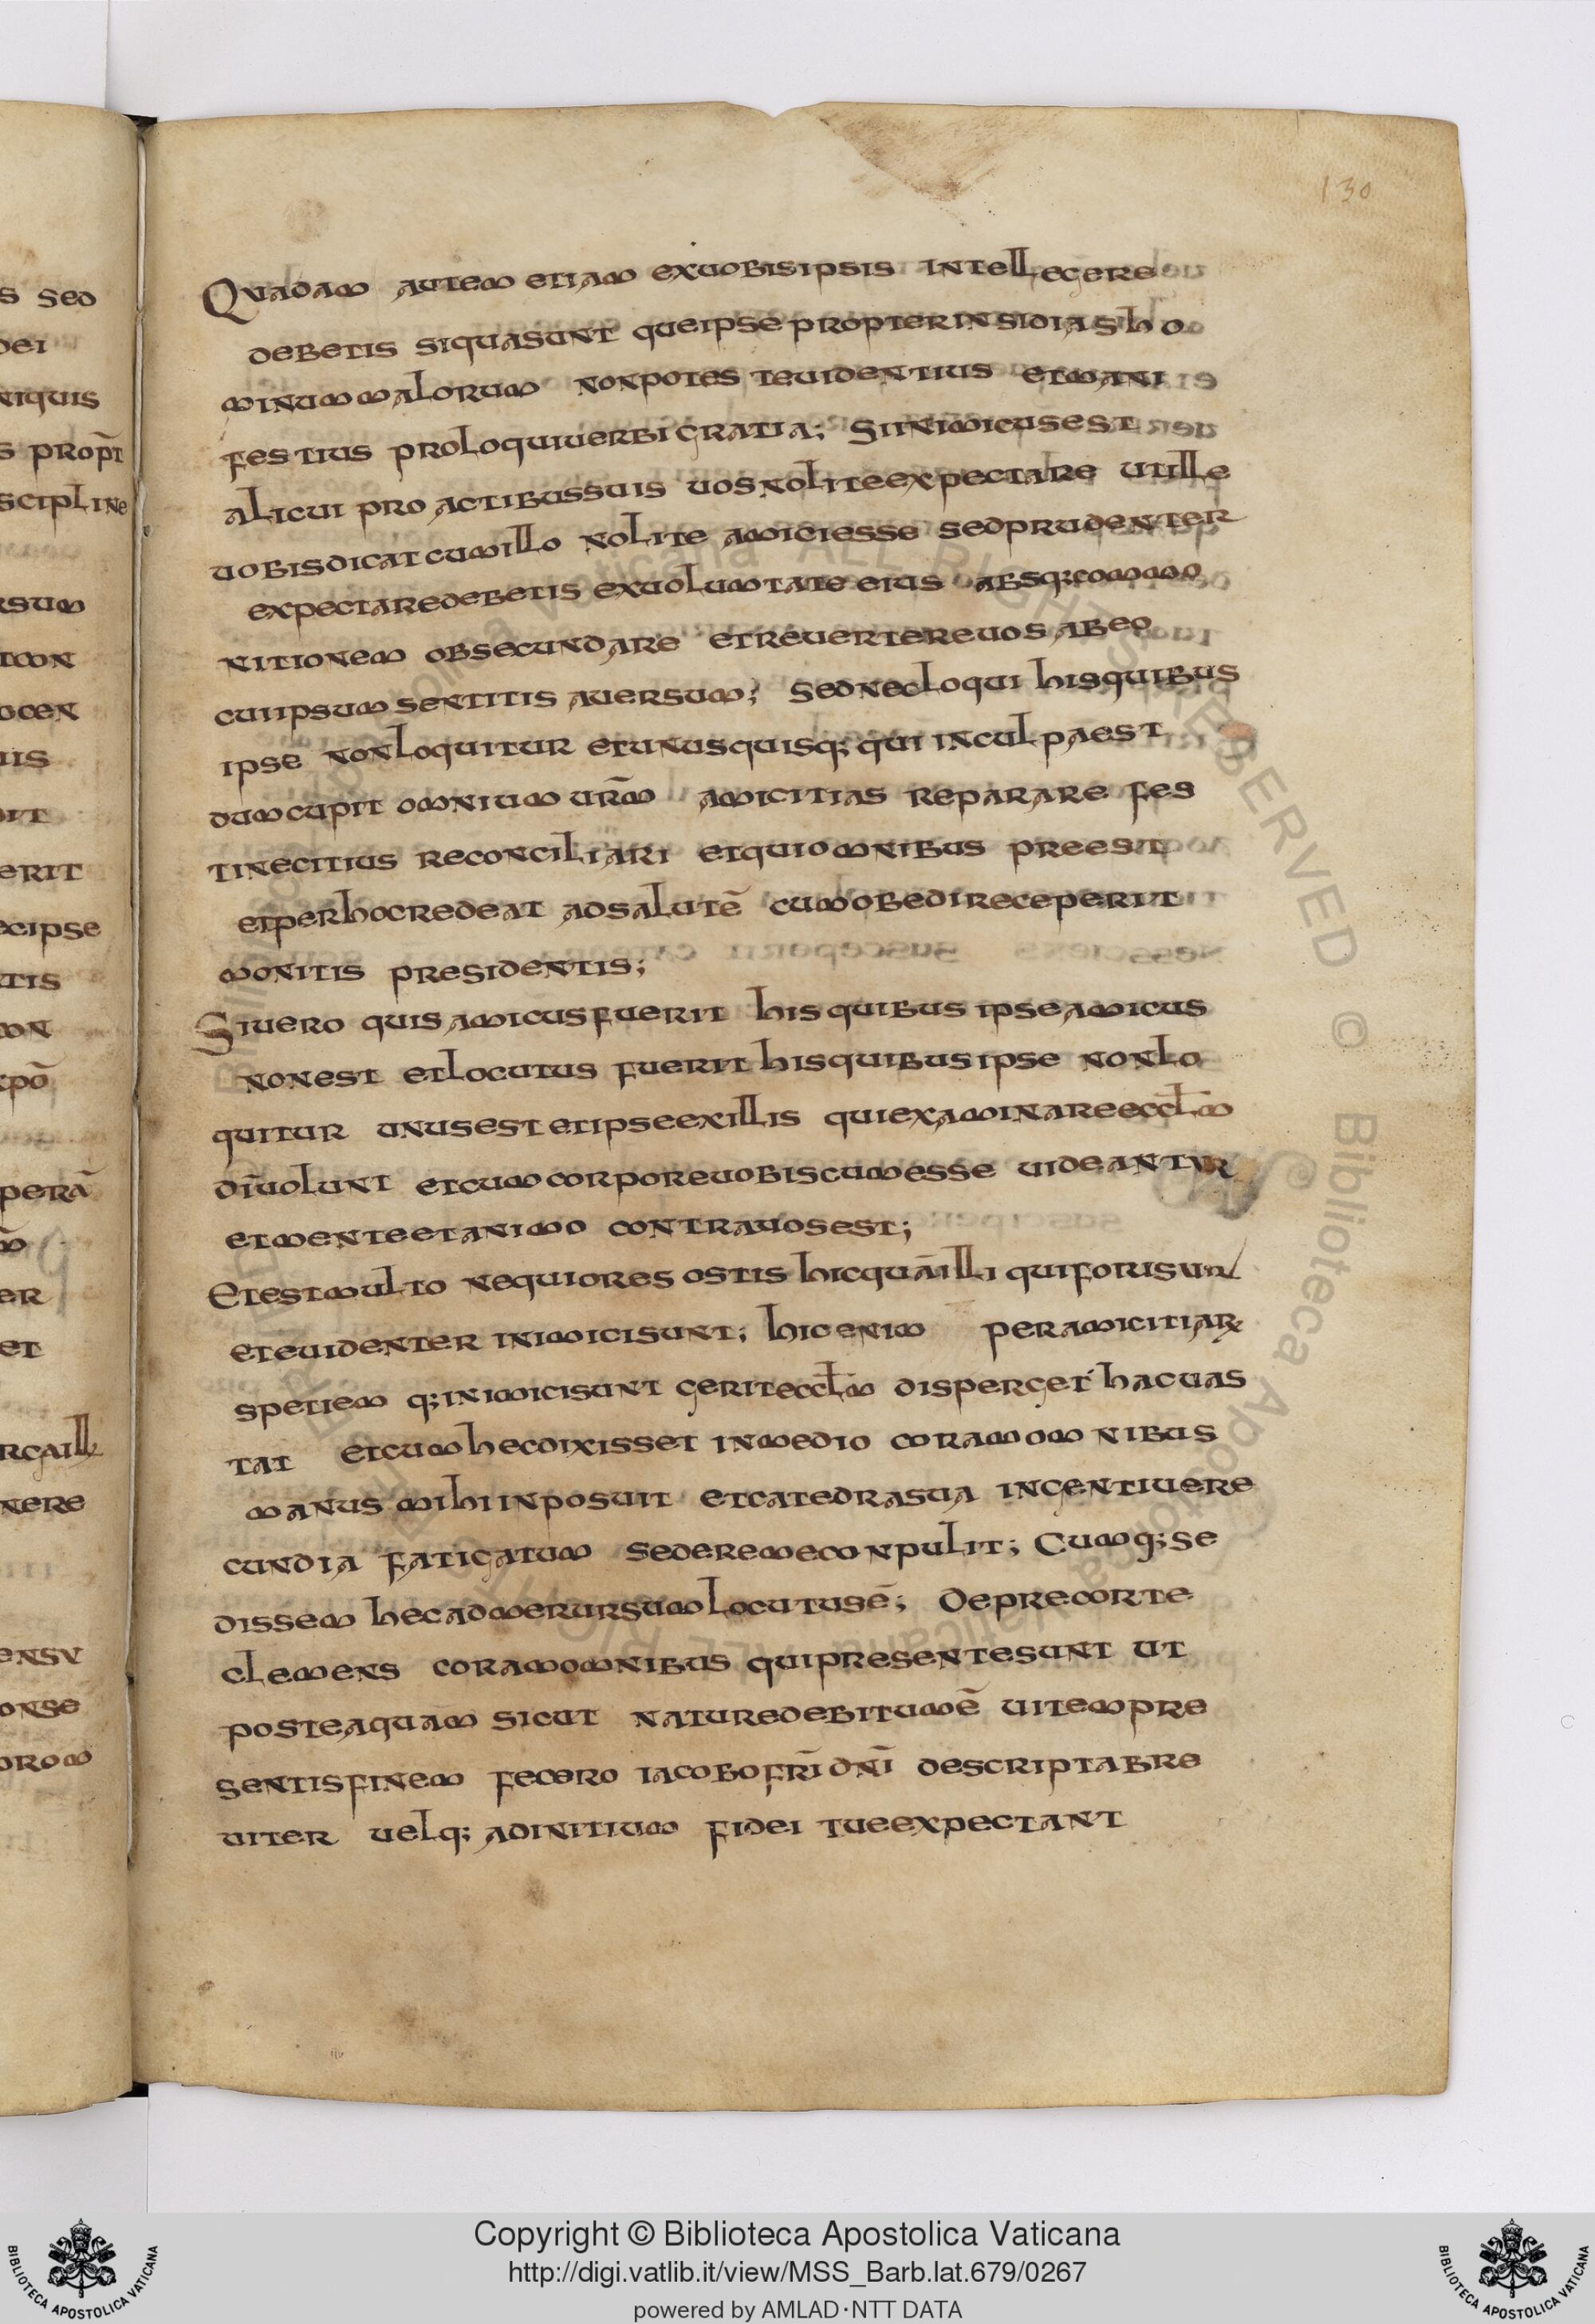 s sed
dei
niquis
s prop̄t
scipline
rsum
tmn
ocen
uis
oit
erit
ecipse
tis
mn
xpō
perā
m̄
er
et
rgaill
nere
ensu
onse
orom
130
Quadam autem etiam exuobisipsis intellegere
debetis siquasunt queipse propterinsidias ho
minummalorum nonpotes teuidentius etmani
festius proloquiuerbi gratia; Siinimicusest
alicui pro actibussuis uosnoliteexpectare utille
uobisdicatcumillo nolite amiciesse sedprudenter
expectaredebetis exuolumtate eius absq;commo
nitionem obsecundare etreuertereuos abeo
cuiipsumsentitis auersum; sednecloqui hisquibus
ipse nonloquitur etunusquisq; qui inculpaest
dumcupit omnium ur̄m amicitias reparare fes
tinecitius reconciliari etquiomnibus preest
etperhocredeat adsalutē cumobedireceperit
monitis presidentis;
Siuero quis amicusfuerit his quibus ipseamicus
nonest etlocutus fuerit hisquibusipse nonlo
quitur unusest etipseexillis quiexaminareeccl̄m
dī̄uolunt etcumcorporeuobiscumesse uideantur
etmenteetanimo contrauosest;
Etestmulto nequiores ostis hicquāilli quiforisun
eteuidenter inimicisunt; hicenim peramicitiaꝝ
spetiem q;inimicisunt geriteccl̄m disperget hacuas
tat etcumhecdixisset inmedio coramomnibus
manus mihiinposuit etcatedrasua incentiuere
cundia fatigatum sederemeconpulit; Cumq;se
dissem hecadmerursumlocutusē; Deprecorte
clemens coramomnibus quipresentesunt ut
posteaquam sicut naturedebitumē uitempre
sentisfinem fecero iacobofr̄i dn̄i descriptabre
uiter uelq; adinitium fidei tueexpectant
Copyright © Biblioteca Apostolica Vaticana
http://digi.vatlib.it/view/MSS_Barb.lat.679/0267
powered by AMLAD·NTT DATA